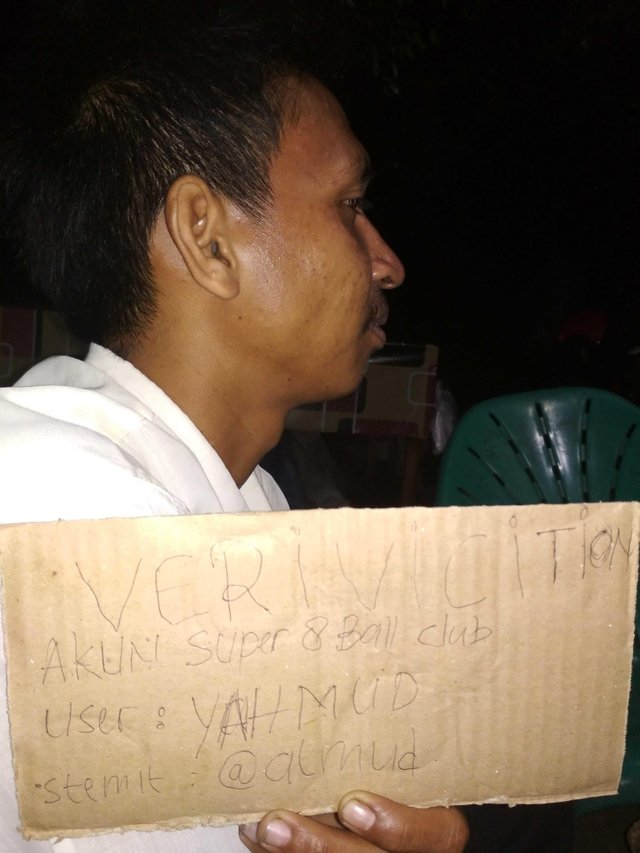 VERIVICITION
AKUN Super 8 Ball club
User : YAHMUD
stemit : @almud